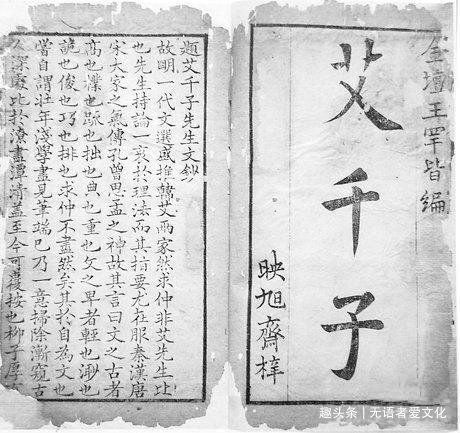 金壇王罕皆編
艾千子
映旭齋梓
題艾千子先生文鈔
故明一代文選底推韓艾兩家然求仲非艾先生比
也先生持論一衷於理法而其指要尤在服秦漢唐
宋大家之氣傳孔曾思孟之神故其言曰文之古者
高也潔也踈也拙也典也重也文之卑者輕也渺也
詭也俊也巧也排也求仲不盡然矣其於自為文也
嘗自謂壯年淺學盡見筆端已乃一意掃除漸窺古
人深處比於潦盡潭清蓋至今可覆按也柳子厚
趣头条 | 无语者爱文化